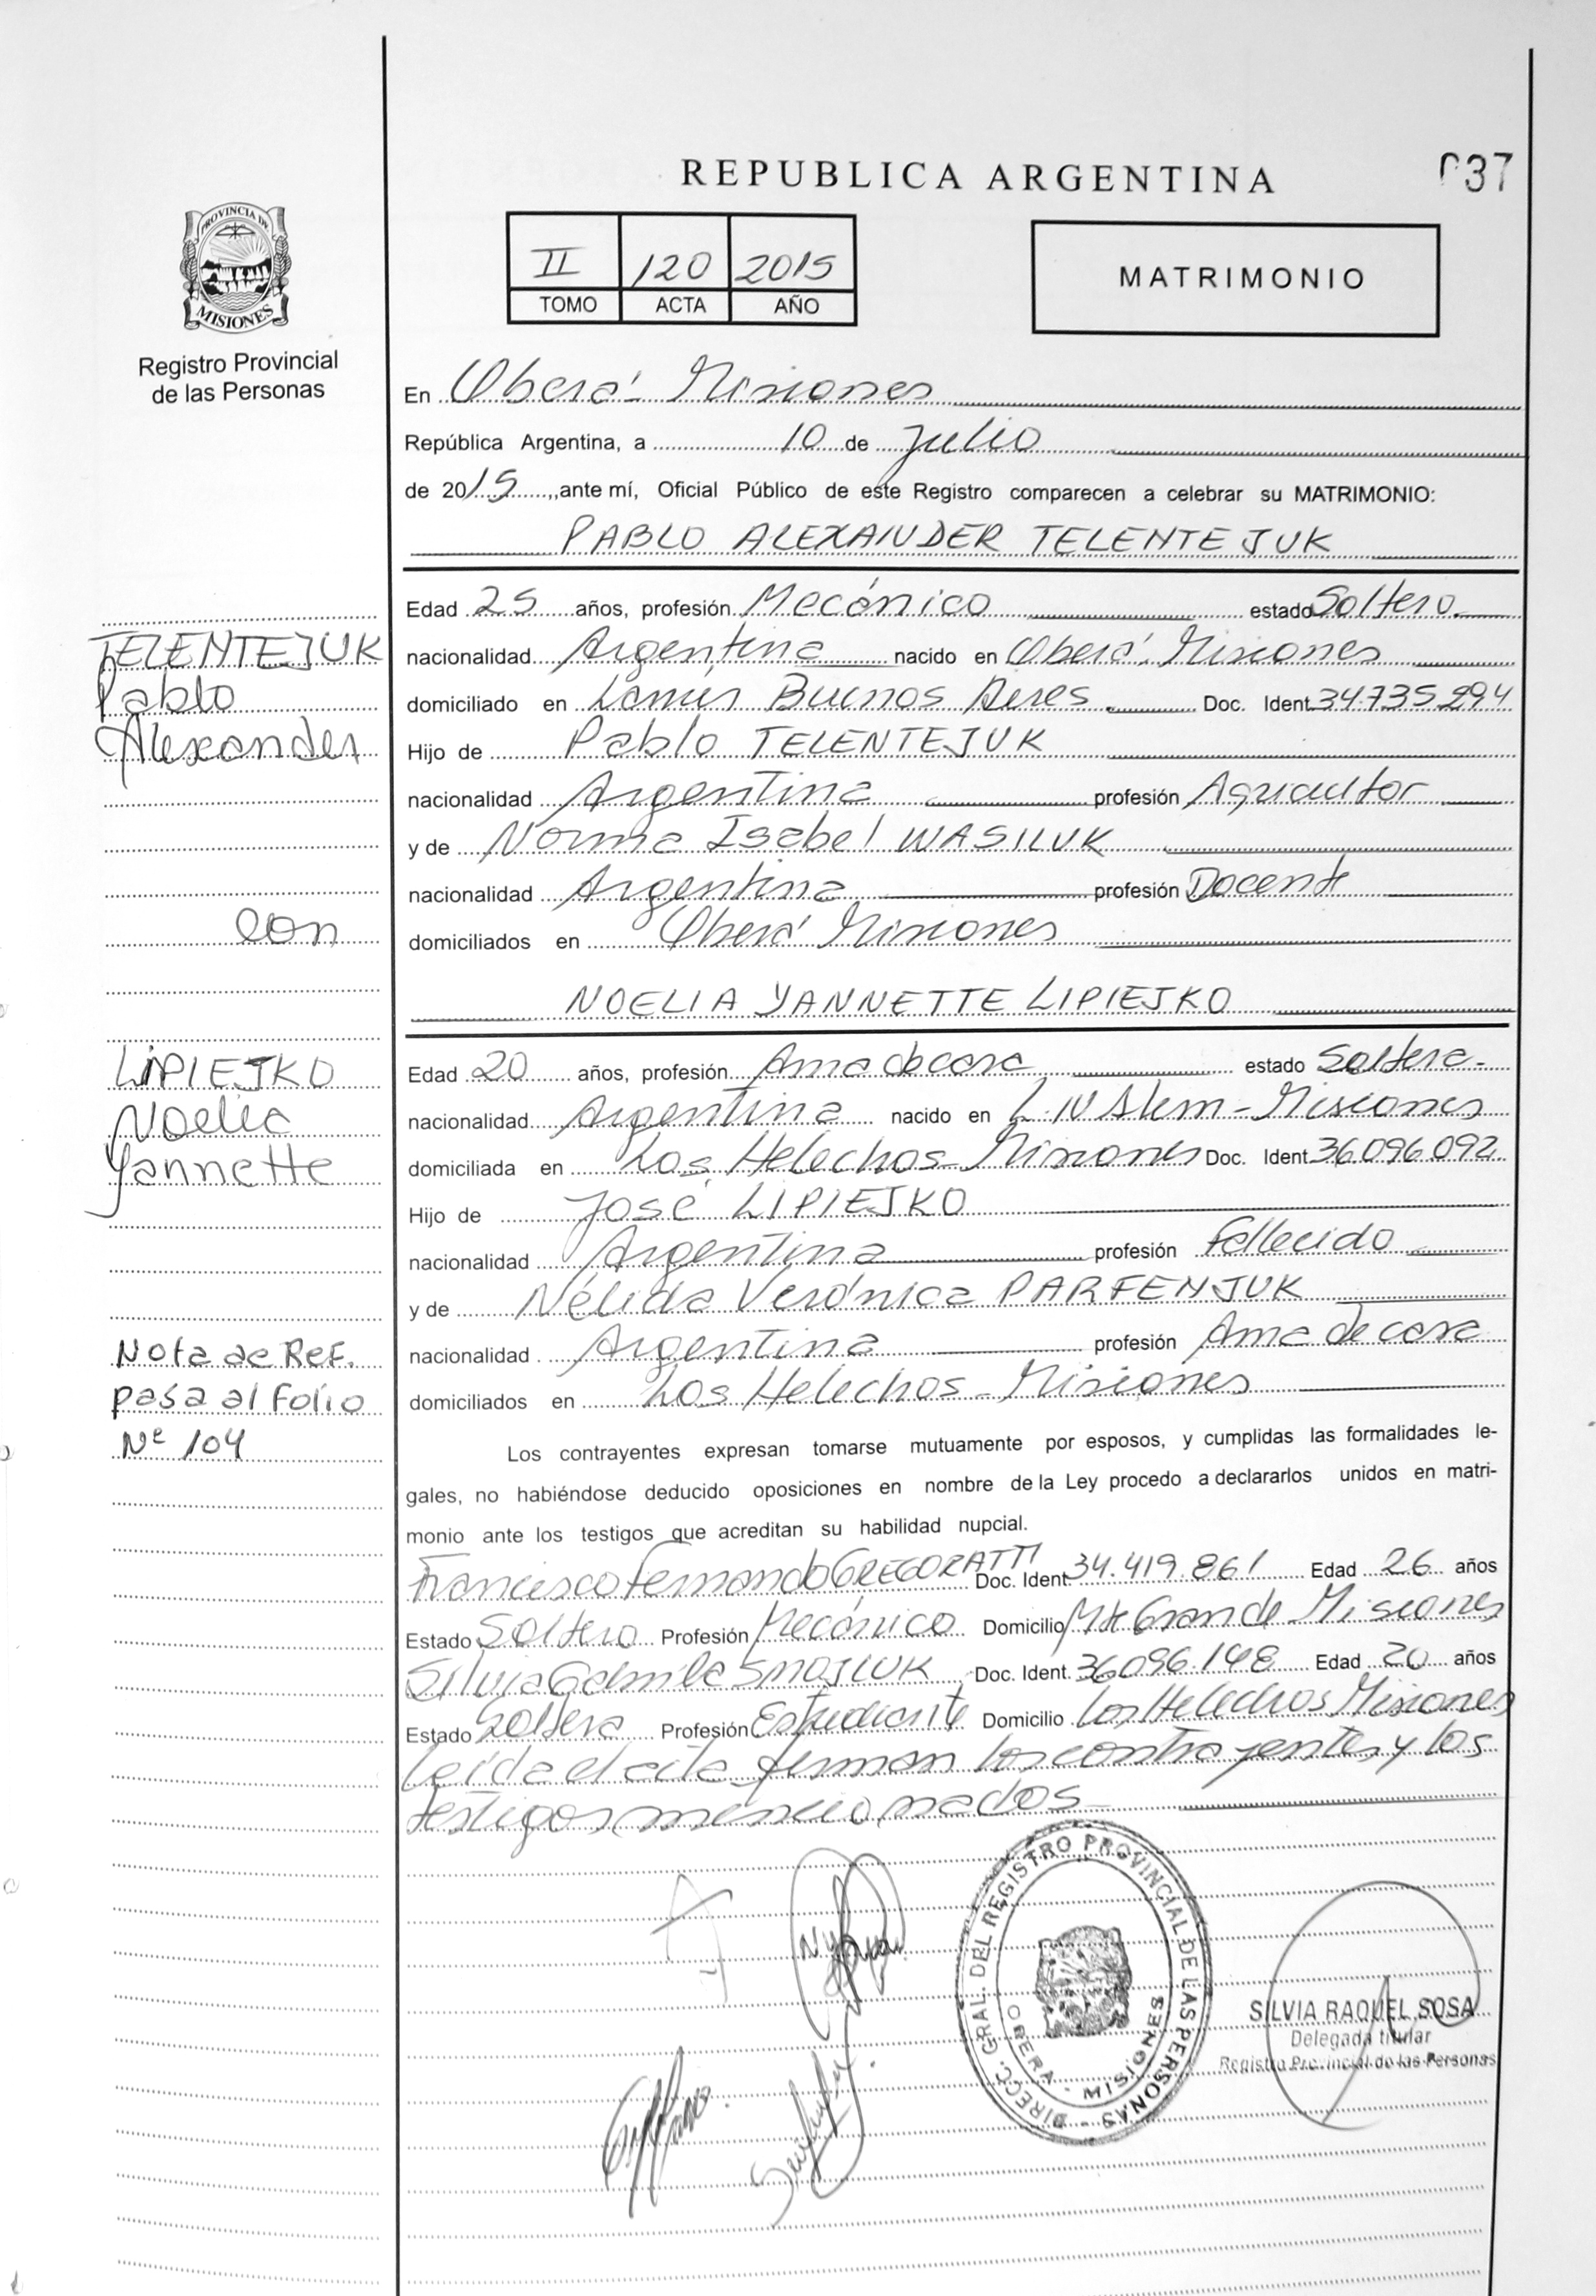 REPUBLICA ARGENTINA
037
PROVINCIA DE
MISIONES
Registro Provincial
de las Personas
II 120 2015
TOMO ACTA AÑO
MATRIMONIO
En Oberá Misiones
República Argentina, a 10 de Julio
de 2015, ante mí, Oficial Público de este Registro comparecen a celebrar su MATRIMONIO:
PABLO ALEXANDER TELENTEJUK
Edad 25 años, profesión Mecánico estado Soltero.
nacionalidad Argentina nacido en Oberá, Misiones
domiciliado en Lanús Buenos Aires. Doc. Ident. 34.735.294
Hijo de Pablo TELENTEJUK
nacionalidad Argentina profesión Agricultor
y de Norma Isabel WASILUK
nacionalidad Argentina profesión Docente
domiciliados en Oberá Misiones
NOELIA YANNETTE LIPIEJKO
Edad 20 años, profesión Ama de casa estado Soltera-
nacionalidad Argentina nacido en L.N Alem - Misiones
domiciliada en Los Helechos Misiones Doc. Ident. 36.096.092
Hijo de José LIPIEJKO
nacionalidad Argentina profesión Fallecido
y de Nélida Verónica PARFENJUK
nacionalidad Argentina profesión Ama de casa
domiciliados en Los Helechos - Misiones
Los contrayentes expresan tomarse mutuamente por esposos, y cumplidas las formalidades le-
gales, no habiéndose deducido oposiciones en nombre de la Ley procedo a declararlos unidos en matri-
monio ante los testigos que acreditan su habilidad nupcial.
Francisco Fernando GREGORATTI Doc. Ident. 34.419.861 Edad 26 años
Estado Soltero Profesión Mecánico Domicilio Mte Grande Misiones
Silvia Camila SMOJLUK Doc. Ident. 36096.148 Edad 20 años
Estado Soltera Profesión Estudiante Domicilio Los Helechos Misiones
Leída el acta firman los contrayentes y los
testigos mencionados
TELENTEJUK
Pablo
Alexander
con
LIPIEJKO
Noelia
Yannette
Nota de Ref.
pasa al Folio
Nº 104
DIRECC. GRAL. DEL REGISTRO PROVINCIAL DE LAS PERSONAS
OBERA - MISIONES
SILVIA RAQUEL SOSA
Delegada titular
Registro Provincial de las Personas